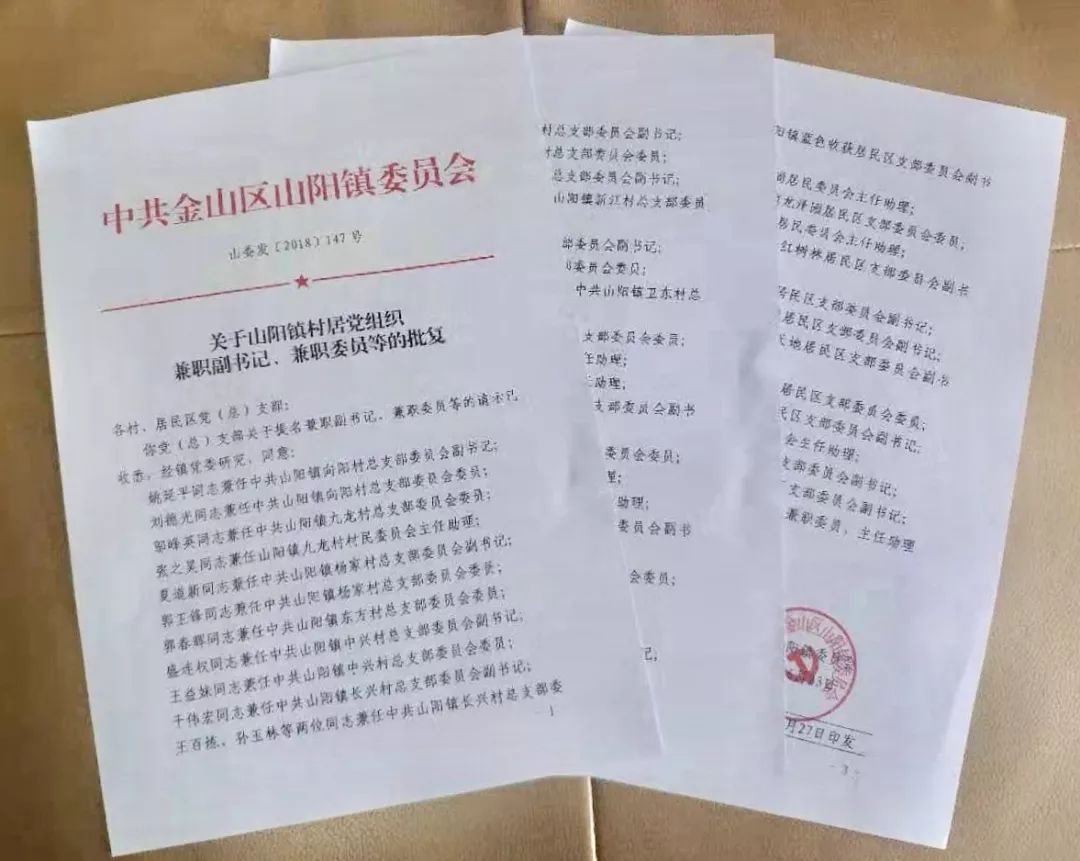 中共金山区山阳镇委员会
山委发〔2018〕147号
关于山阳镇村居党组织
兼职副书记、兼职委员等的批复
各村、居民区党（总）支部：
你党（总）支部关于提名兼职副书记、兼职委员等的请示已
收悉，经镇党委研究，同意：
姚延平同志兼任中共山阳镇向阳村总支部委员会副书记；
刘德光同志兼任中共山阳镇向阳村总支部委员会委员；
邬峰英同志兼任中共山阳镇九龙村总支部委员会委员；
张之昊同志兼任山阳镇九龙村村民委员会主任助理；
夏道新同志兼任中共山阳镇杨家村总支部委员会副书记；
郭王锋同志兼任中共山阳镇杨家村总支部委员会委员；
郭春晖同志兼任中共山阳镇东方村总支部委员会委员；
盛连权同志兼任中共山阳镇中兴村总支部委员会副书记；
王益妹同志兼任中共山阳镇中兴村总支部委员会委员；
干伟宏同志兼任中共山阳镇长兴村总支部委员会副书记；
王百拣、孙玉林等两位同志兼任中共山阳镇长兴村总支部委
- 1
村总支部委员会副书记；
村总支部委员会委员；
总支部委员会副书记；
山阳镇新江村总支部委员
部委员会副书记；
委员会委员；
中共山阳镇卫东村总
支部委员会委员；
任助理；
主任助理；
支部委员会副书
委员会委员；
助理；
委员会副书
会委员；
记；
阳镇蓝色收获居民区支部委员会副书
居民委员会主任助理；
龙泽园居民区支部委员会委员；
居民委员会主任助理；
红树林居民区支部委员会副书
居民区支部委员会副书记；
居民区支部委员会副书记；
天地居民区支部委员会副书
居民区支部委员会委员；
民区支部委员会副书记；
会主任助理；
支部委员会副书记；
支部委员会副书记；
兼职委员，主任助理
金山区山阳镇委员会
阳镇委
3日
月27日印发
- 3